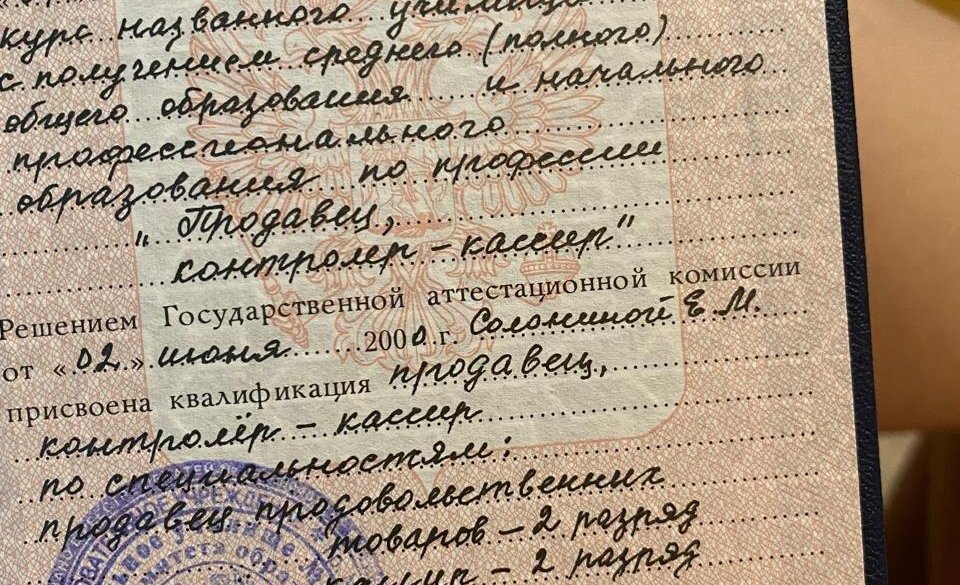 курс названного училища
с получением среднего (полного)
общего образования и начального
профессионального
образования по профессии
„Продавец,
контролер – кассир"
Решением Государственной аттестационной комиссии
от «02.» июня 2000.г. Солониной Е.М.
присвоена квалификация продавец,
контролёр – кассир
по специальностям:
продавец продовольственных
товаров – 2 разряд
кассир – 2 разряд